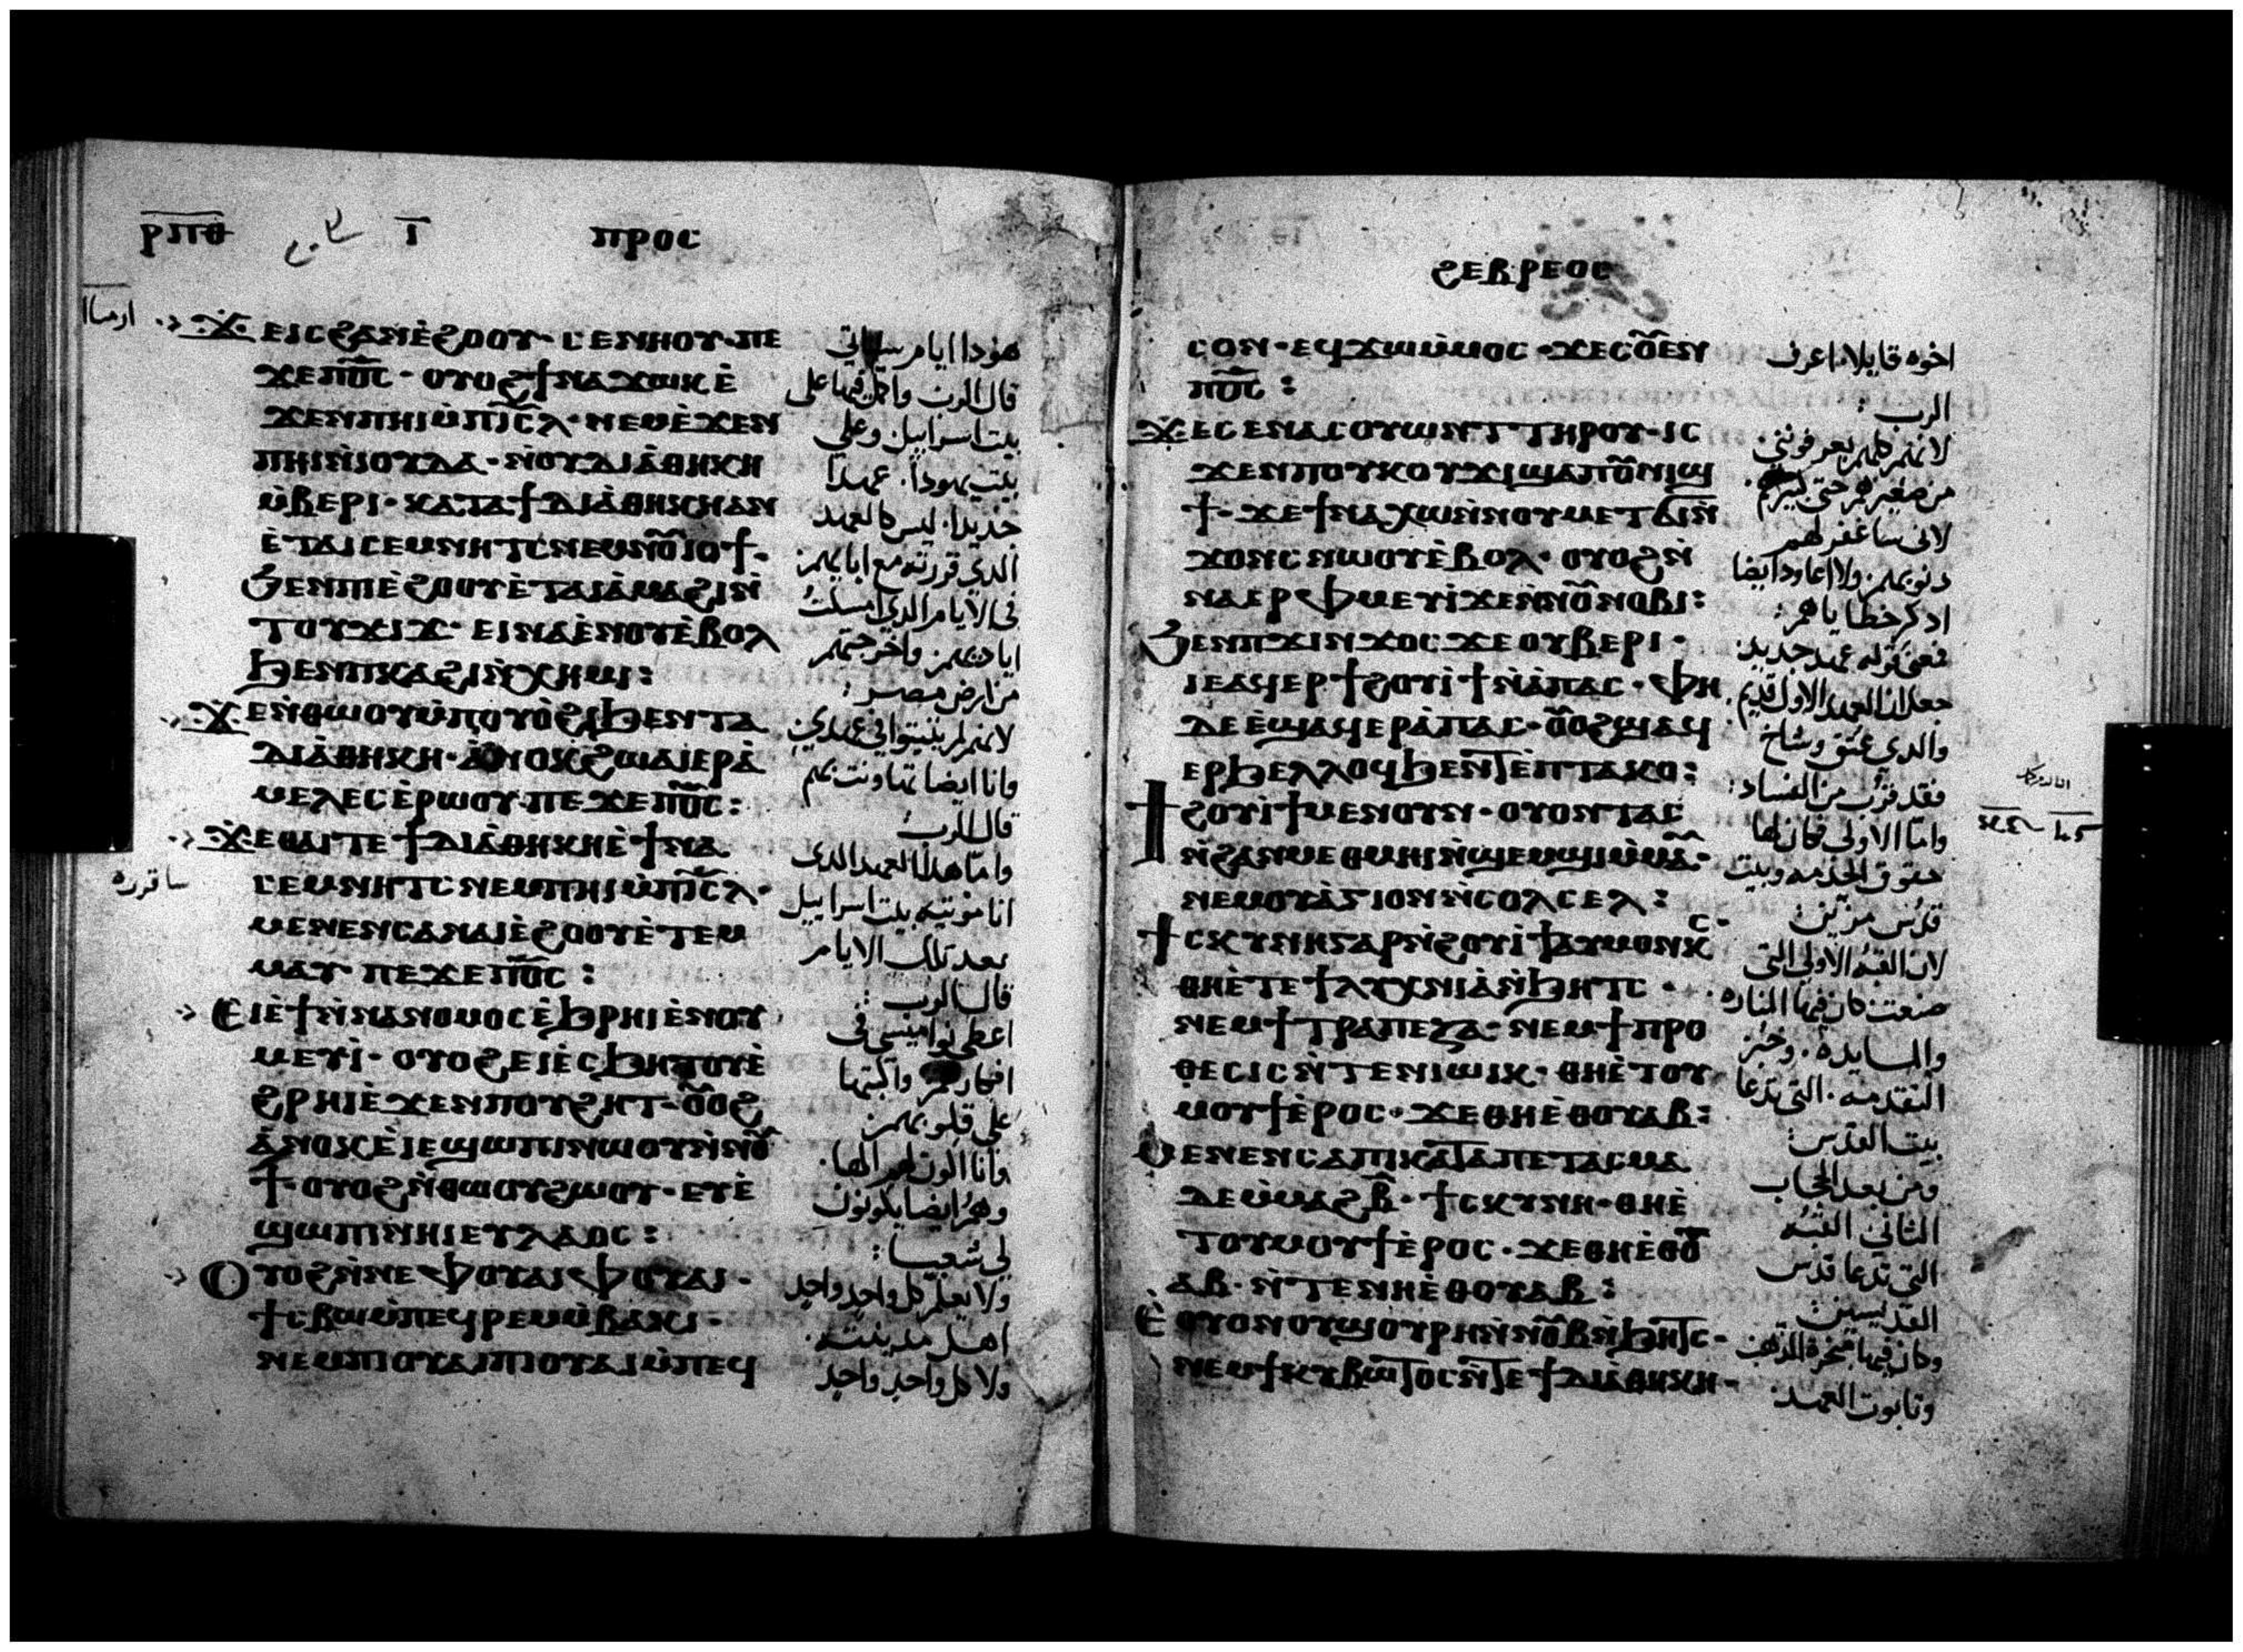 ⲣⲡⲑ ⲓ̅ ⲡⲣⲟⲥ
ϫⲉⲓⲥϩⲁⲛⲉ̀ϩⲟⲟⲩ· ⲥⲉⲛⲏⲟⲩ· ⲡⲉ
ϫⲉⲡⲟ̅ⲥ̅· ⲟⲩⲟϩϯⲛⲁϫⲱⲕⲉ̀
ϫⲉⲛⲡⲏⲓⲙ̀ⲡⲓ̅ⲥ̅ⲗ̅· ⲛⲉⲙⲉ̀ϫⲉⲛ
ⲡⲏⲓⲛ̀ⲓⲟⲩⲇⲁ· ⲛ̀ⲟⲩⲇⲓⲁ̀ⲑⲏⲕⲏ
ⲙ̀ⲃⲉⲣⲓ· ⲕⲁⲧⲁϯⲇⲓⲁ̀ⲑⲏⲕⲏⲁⲛ
ⲉ̀ⲧⲁⲓⲥⲉⲙⲛⲏⲧⲥⲛⲉⲙⲛⲟ̅ⲓⲟϯ·
ϧⲉⲛⲡⲓⲉ̀ϩⲟⲟⲩⲉ̀ⲧⲁⲓⲁ̀ⲙⲁϩⲓⲛ̀
ⲧⲟⲩϫⲓϫ· ⲉⲓⲛⲁⲉ̀ⲛⲟⲩⲉ̀ⲃⲟⲗ
ϧⲉⲛⲡⲕⲁϩⲓⲛ̀ⲭⲏⲙⲓ:
ϫⲉⲛ̀ⲑⲱⲟⲩⲙ̀ⲡⲟⲩⲟ̀ϩⲓϧⲉⲛⲧⲁ
ⲇⲓⲁ̀ⲑⲏⲕⲏ· ⲁ̀ⲛⲟⲕϩⲱⲁⲓⲉⲣⲁ̀
ⲙⲉⲗⲉⲥⲉ̀ⲣⲱⲟⲩ· ⲡⲉϫⲉⲡⲟ̅ⲥ̅:
ϫⲉⲑⲁⲓⲧⲉϯⲇⲓⲁ̀ⲑⲏⲕⲏⲉ̀ϯⲛⲁ
ⲥⲉⲙⲛⲏⲧⲥⲛⲉⲙⲡⲏⲓⲙ̀ⲡⲓ̅ⲥ̅ⲗ̅·
ⲙⲉⲛⲉⲛⲥⲁⲛⲁⲓⲉ̀ϩⲟⲟⲩⲉ̀ⲧⲉⲙ
ⲙⲁⲩ ⲡⲉϫⲉⲡⲟ̅ⲥ̅:
ⲉⲓⲉ̀ϯⲛ̀ⲛⲁⲛⲟⲙⲟⲥⲉ̀ϧⲣⲏⲓⲉ̀ⲛⲟⲩ
ⲙⲉⲩⲓ̀· ⲟⲩⲟϩⲉⲓⲉ̀ⲥϧⲏⲧⲟⲩⲉ̀
ϩⲣⲏⲓⲉ̀ϫⲉⲛⲡⲟⲩϩⲏⲧ· ⲟ̅ⲟϩ
ⲁ̀ⲛⲟⲕⲉ̀ⲓⲉϣⲱⲡⲓⲛⲱⲟⲩⲛ̀ⲛⲟ̅
ϯ· ⲟⲩⲟϩⲛ̀ⲑⲱⲟⲩϩⲱⲟⲩ· ⲉⲩⲉ̀
ϣⲱⲡⲓⲛⲏⲓⲉⲩⲗⲁⲟⲥ:
ⲟⲩⲟϩⲛ̀ⲛⲉⲫⲟⲩⲁⲓⲫⲟⲩⲁⲓ·
ϯⲥⲃⲱⲙ̀ⲡⲉϥⲣⲉⲙⲙ̀ⲃⲁⲕⲓ·
ⲛⲉⲙⲡⲓⲟⲩⲁⲓⲡⲓⲟⲩⲁⲓⲙ̀ⲡⲉϥ
هوذا ايام ستاتى
قال الرب واكمل فيها على
بيت اسراييل وعلى
بيت يهوذا· عهدا
جديدا· ليس كالعهد
الذي قررته مع ابايهم
فى الايام الذي امسكت
اياديهم· واخرجتهم
من ارض مصر:
لانهم لم يثبتوا فى عهدي
وانا ايضا تهاونت بهم
قال الرب
واما هذا العهد الذي
انا موتيه بيت اسراييل
ساقرره
بعد تلك الايام
قال الرب:
اعطى نواميسى فى
افكارهم واكتبها
على قلوبهم
وانا اكون لهم الها·
وهم ايضا يكونون
لى شعبا:
ولا يعلم كل واحد واحد
اهل مدينته·
ولا كل واحد واحد
ϩⲉⲃⲣⲉⲟⲥ
ⲥⲟⲛ· ⲉϥϫⲱⲙ̀ⲙⲟⲥ· ϫⲉⲥⲟ̅ⲉⲛ
ⲡⲟ̅ⲥ̅:
ϫⲉⲥⲉⲛⲁⲥⲟⲩⲱⲛⲧⲧⲏⲣⲟⲩ· ⲓⲥ
ϫⲉⲛⲡⲟⲩⲕⲟⲩϫⲓϣⲁⲡⲟ̅ⲛⲓϣ
ϯ· ϫⲉϯⲛⲁⲭⲱⲛ̀ⲛⲟⲩⲙⲉⲧϭⲓⲛ̀
ϫⲟⲛⲥⲛⲱⲟⲩⲉ̀ⲃⲟⲗ· ⲟⲩⲟϩⲛ̀
ⲛⲁⲉⲣⲫⲙⲉⲩⲓ̀ϫⲉⲛ̀ⲛⲟ̅ⲛⲟⲃⲓ:
ϧⲉⲛⲡϫⲓⲛϫⲟⲥϫⲉⲟⲩⲃⲉⲣⲓ·
ⲓⲉⲁϥⲉⲣϯϩⲟⲩⲓ̀ϯⲛ̀ⲁ̀ⲡⲁⲥ· ⲫⲏ
ⲇⲉⲉ̀ϣⲁϥⲉⲣⲁ̀ⲡⲁⲥ· ⲟ̅ⲟϩϣⲁϥ
ⲉⲣϧⲉⲗⲗⲟϥϧⲉⲛⲧⲉ̀ⲡⲧⲁⲕⲟ:
ϯϩⲟⲩⲓ̀ϯⲙⲉⲛⲟⲩⲛ· ⲟⲩⲟⲛⲧⲁⲥ
ⲛ̀ϩⲁⲛⲙⲉⲑⲙⲏⲓⲛ̀ϣⲉⲙϣⲓⲙ̀ⲙⲁ̅·
ⲛⲉⲙⲟⲩⲁ̀ⲅⲓⲟⲛⲛ̀ⲥⲟⲗⲥⲉⲗ:
ϯⲥⲕⲩⲛⲏⲅⲁⲣⲛ̀ϩⲟⲩⲓ̀ϯⲁⲩⲙⲟⲛⲕⲥ·
ⲑⲏⲉ̀ⲧⲉϯⲗⲩⲭⲛⲓⲁ̀ⲛ̀ϧⲏⲧⲥ·
ⲛⲉⲙϯⲧⲣⲁⲡⲉⲍⲁ· ⲛⲉⲙϯⲡⲣⲟ
ⲑⲉⲥⲓⲥⲛ̀ⲧⲉⲛⲓⲱⲓⲕ· ⲑⲏⲉ̀ⲧⲟⲩ
ⲙⲟⲩϯⲉ̀ⲣⲟⲥ· ϫⲉⲑⲏⲉ̀ⲑⲟⲩⲁⲃ:
ⲙⲉⲛⲉⲛⲥⲁⲡⲓⲕⲁⲧⲁⲡⲉⲧⲁⲥⲙⲁ
ⲇⲉⲙ̀ⲙⲁϩⲃ̅· ϯⲥⲕⲩⲛⲏ· ⲑⲏⲉ̀
ⲧⲟⲩⲙⲟⲩϯⲉ̀ⲣⲟⲥ· ϫⲉⲑⲏⲉ̀ⲑⲟ̅
ⲁⲃ· ⲛ̀ⲧⲉⲛⲏⲉ̀ⲑⲟⲩⲁⲃ:
ⲉ̀ⲟⲩⲟⲛⲟⲩϣⲟⲩⲣⲏⲛ̀ⲛⲟ̅ⲃⲛ̀ϧⲏⲧⲥ·
ⲛⲉⲙϯⲕⲩⲃⲱⲧⲟⲥⲛ̀ⲧⲉϯⲇⲓⲁ̀ⲑⲏⲕⲏ·
اخوه قايلا· اعرف
الرب:
لانهم كلهم يعرفوننى·
من صغيرهم حتى كبيرهم·
لانى ساغفر لهم
ذنوبهم· ولا اعاود ايضا
اذكر خطاياهم:
فعنى قوله عهد جديد·
جعل ان العهد الاول قديم·
والذي عتق وشاخ
فقد قرب من الفساد:
واما الاولى فكان لها
حقوق الخدمه وبيت
قدس مزين:
لان القبه الاولى التى
صنعت كان فيها المناره
والمايده· وخبز
التقدمه· التى تدعا
بيت القدس:
ومن بعد الحجاب
الثانى القبه
التى تدعا قدس
القديسين:
وكان فيها مجمرة الذهب
وتابوت العهد·